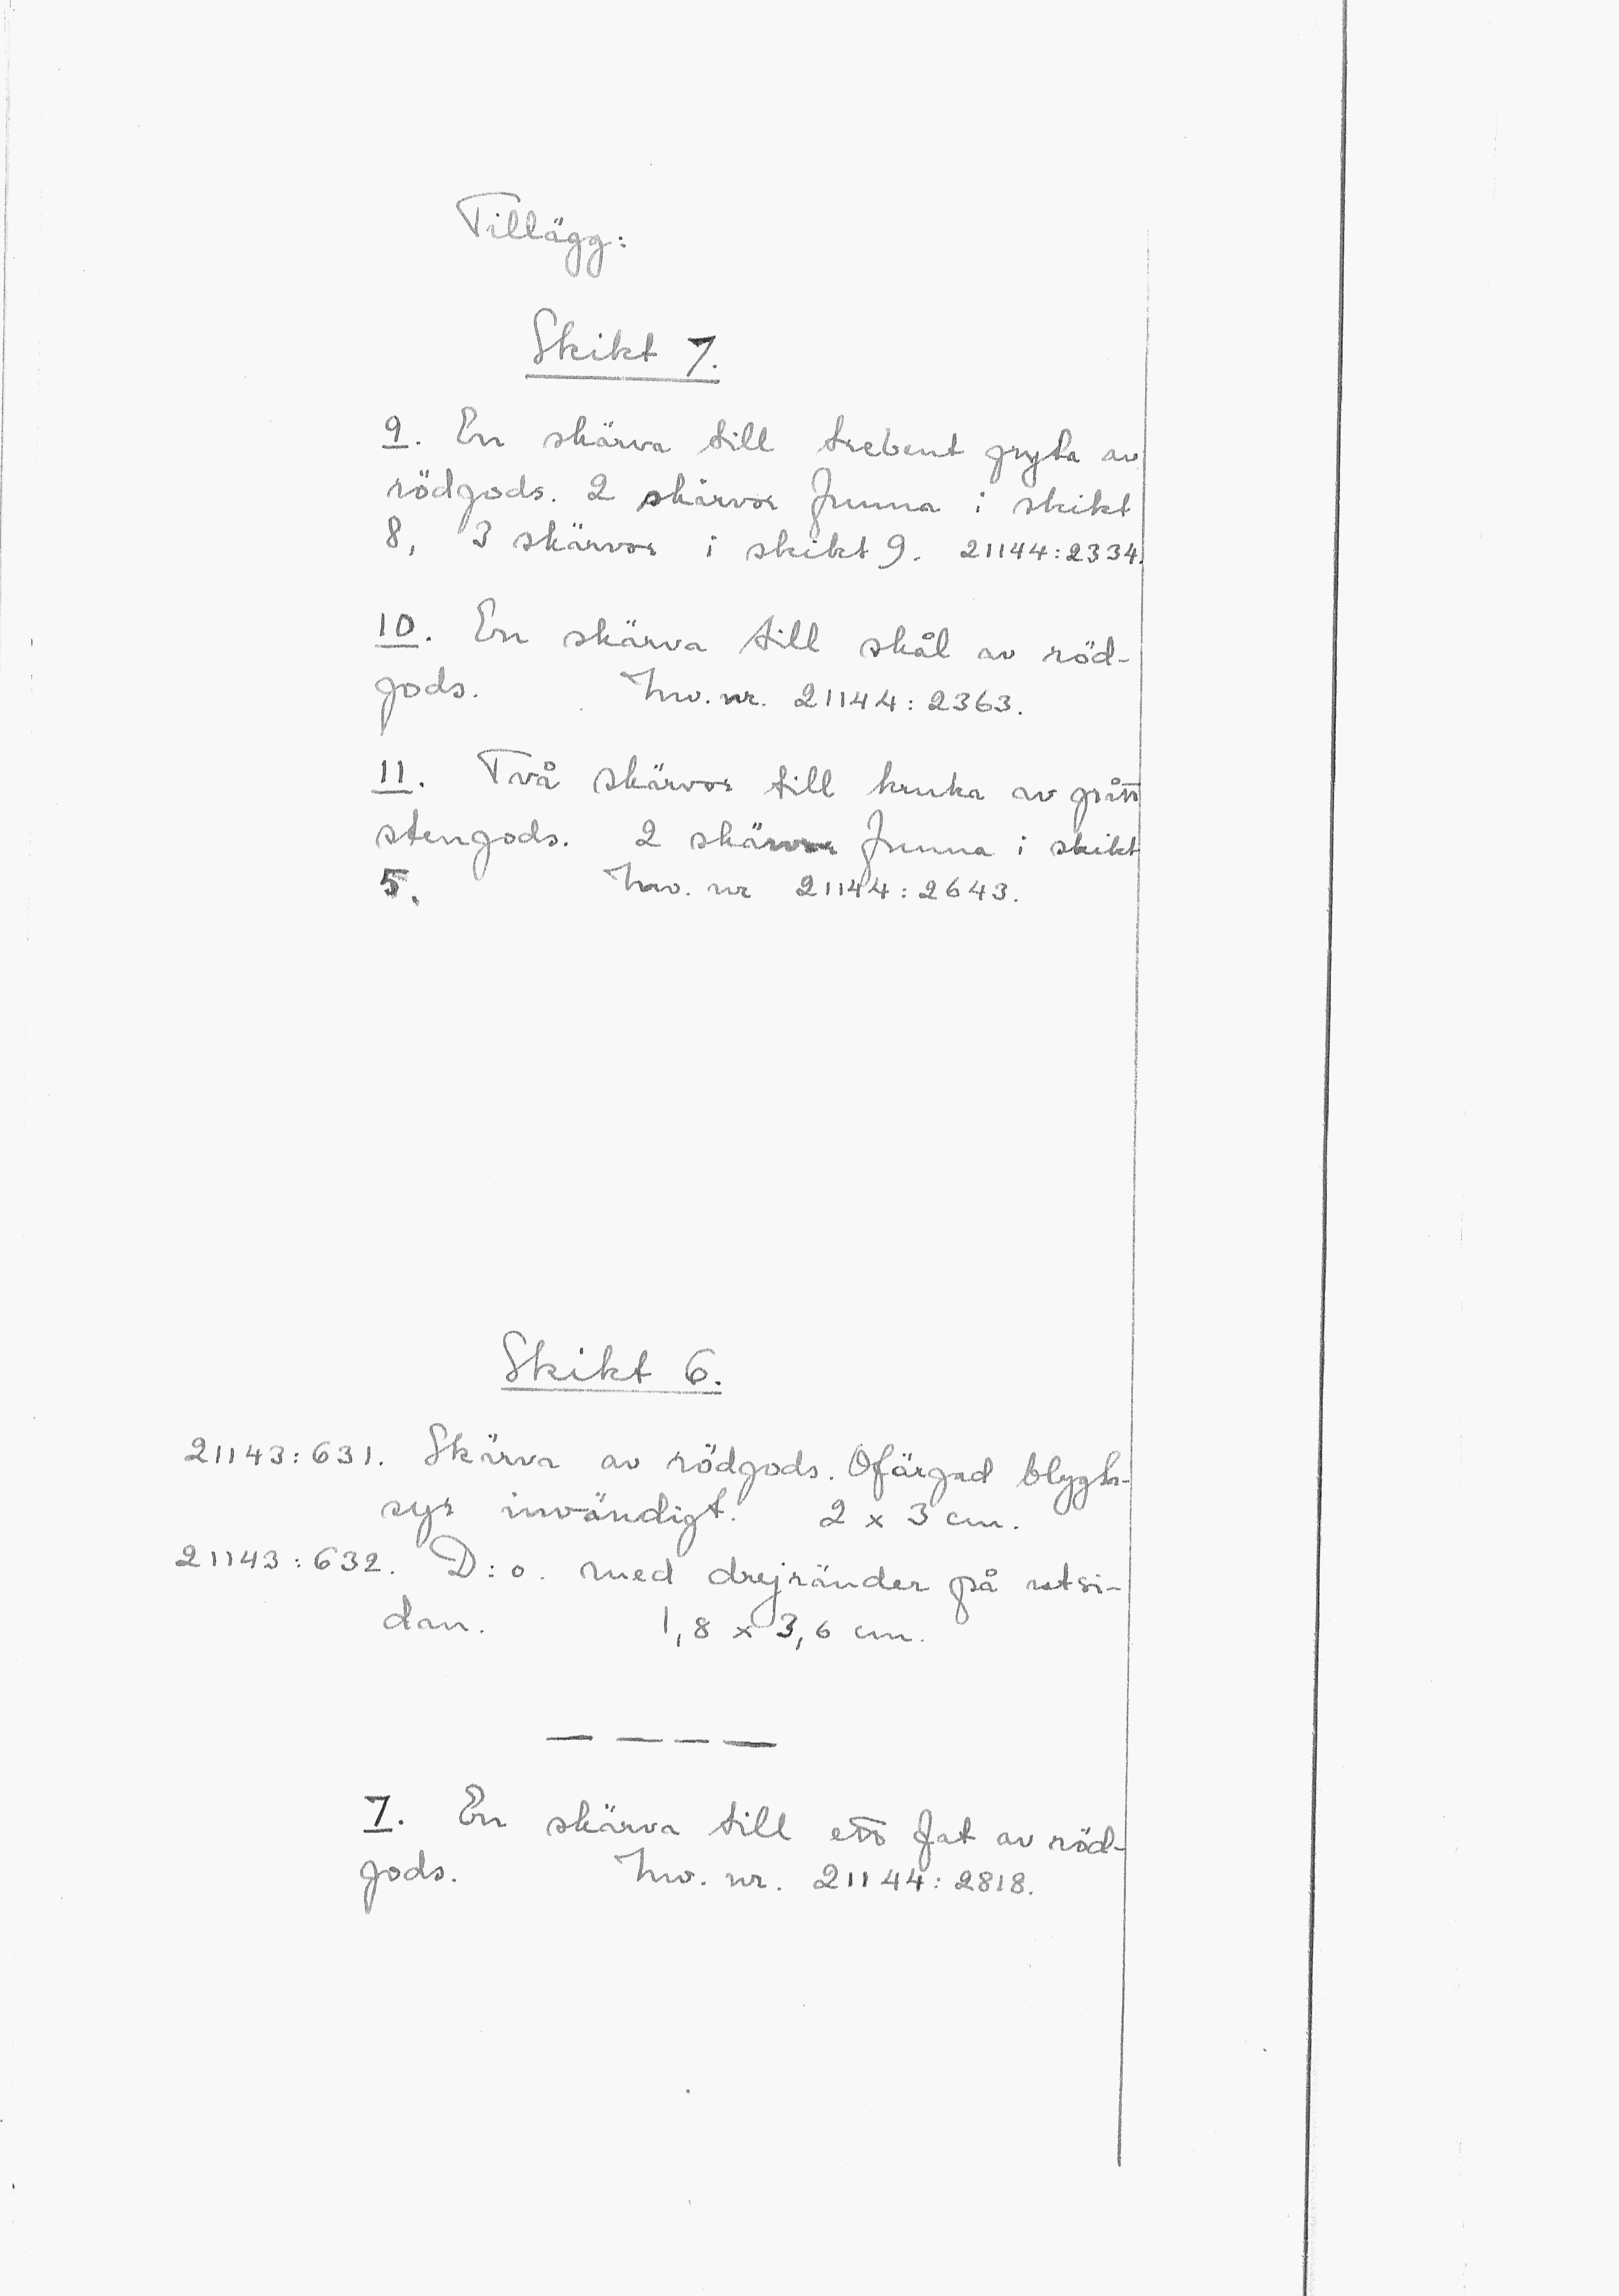 Tillägg:
Skikt 7.
9. En skärva till trebent gryta av
rödgods. 2 skärvor funna i skikt
8, 3 skärvor i skikt 9. 21144:2334.
10. En skärva till skål av röd-
gods. Inv. nr. 21144:2363.
11. Två skärvor till kruka av grått
stengods. 2 skärvor funna i skikt
5. Inv. nr 21144:2643.
Skikt 6.
21143:631. Skärva av rödgods. Ofärgad blygla-
syr invändigt. 2 x 3 cm.
21143:632. D:o. med drejränder på utsi-
dan. 1,8 x 3,6 cm.
7. En skärva till ett fat av röd-
gods. Inv. nr. 21144:2818.